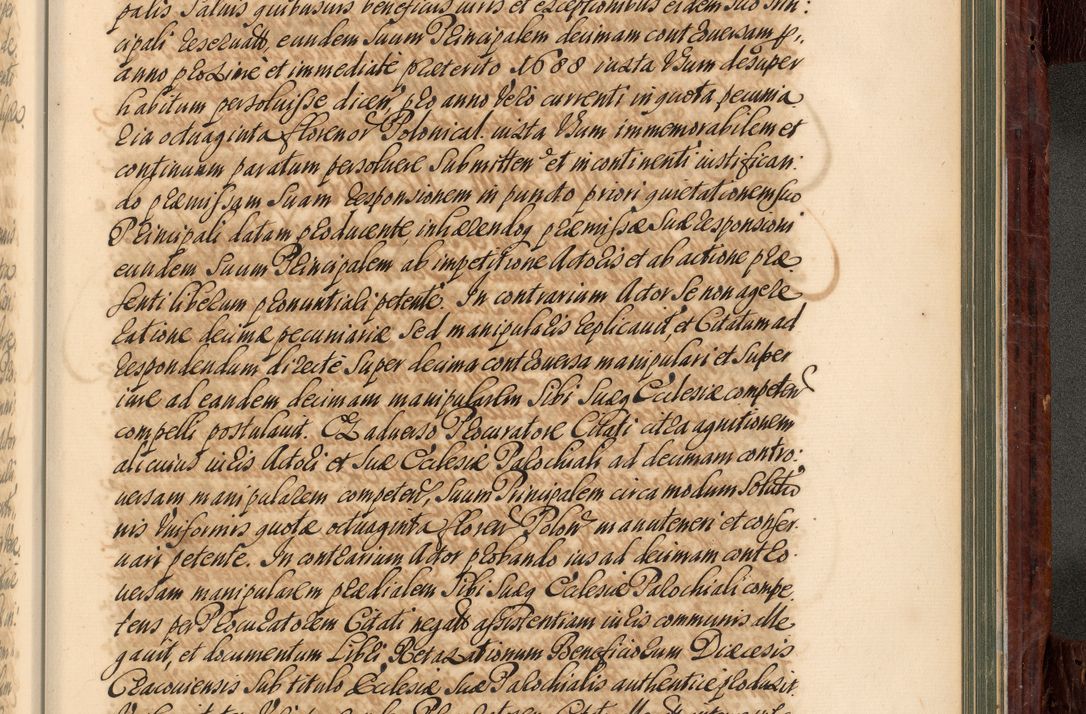 palis Salvis quibusvis beneficiis iuris et exceptionibus eidem suo Prin:
cipali reservatis, eundem Suum Principalem decimam controversam pro
anno proximè et immediatè præterito 1688 iuxta Usum desuper
habitum persoluisse dicen, pro anno verò currenti in quota pecunia
ria octuaginta florenor Polonical. iuxta Usum immemorabilem et
continuum paratum persoluere Submitten et in continenti iustifican:
do præmissam Suam responsionem in puncto priori quietationem suo
Principali datam producente inhærendoq præmissæ Suæ responsioni
eundem Suum Principalem ab impetitione Actoris et ab actione præ
senti liberum pronuntiari petente. In contrarium Actor Se non agere
ratione decimæ pecuniariæ Sed manipularis replicavit, et Citatum ad
respondendum directè Super decima controversa manipulari et Super
iure ad eandem decimam manipularem Sibi Suæq Ecclesiæ competen
compelli postulavit. Ex adverso Procuratore Citati citra agnitionem
alicuius iuris Actori et Suæ Ecclesiæ Parochiali ad decimam contro:
versam manipularem competen, Suum Principalem circa modum Solutio
nis Uniformis quotæ octuaginta floren Polon manuteneri et conser
vari petente. In contrarium Actor probando ius ad decimam contro
versam manipularem prædialem Sibi Suæq Ecclesiæ Parochiali compe
tens per Procuratorem Citati negatis assistentiam iuris communis Alle
gavit, et documentum Libri Retaxationum Beneficiorum Diæcesis
Cracoviensis Sub titulo Ecclesiæ Suæ Parochialis authenticè produxit.